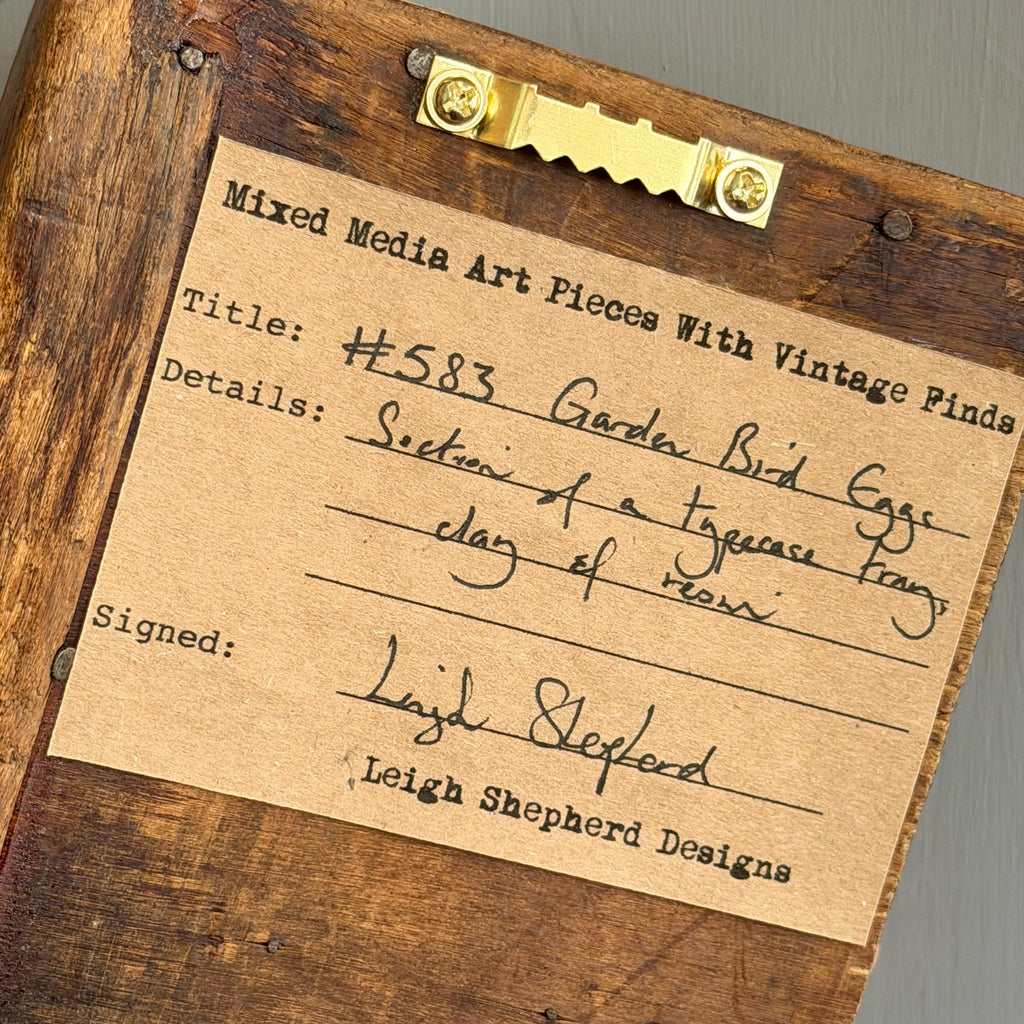 Mixed Media Art Pieces With Vintage Finds
Title: #583 Garden Bird Eggs
Details: Section of a typecase tray,
clay & resin
Signed: Leigh Shepherd
Leigh Shepherd Designs